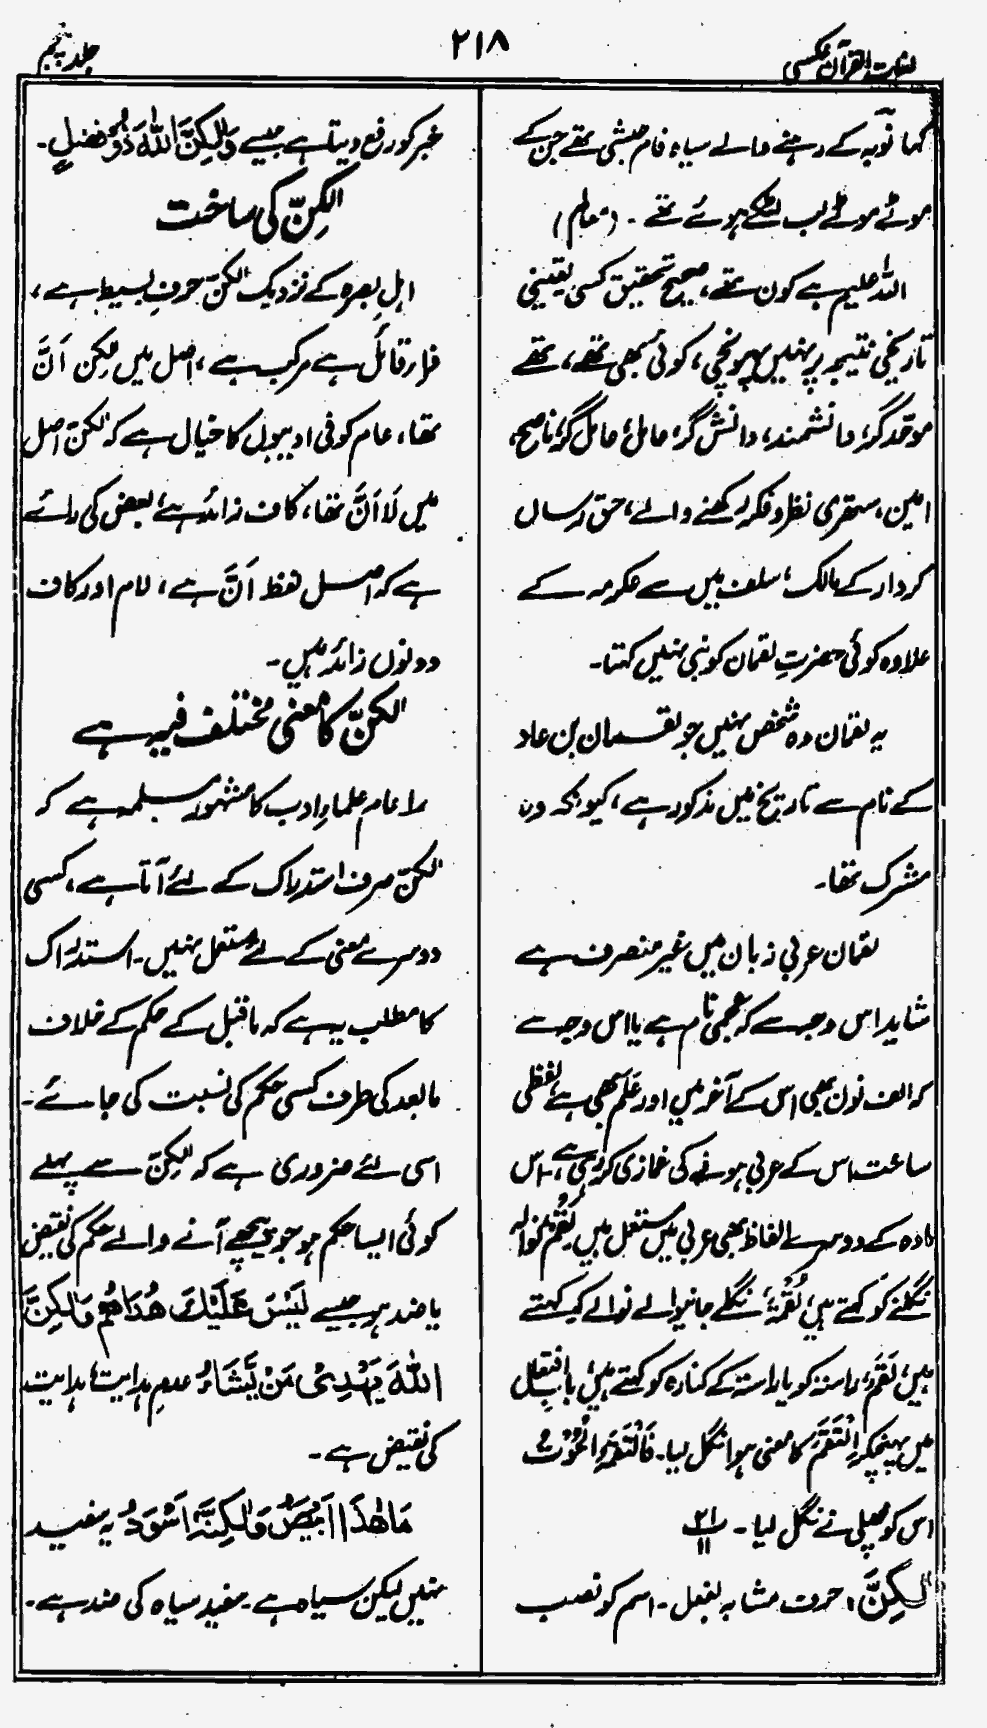 لغات القرآن عکسی
۲۱۸
جلد پنجم
کہا نوبہ کے رہنے والے سیاہ فام حبشی تھے جن کے
موٹے موٹے لب لٹکے ہوئے تھے ۔ (معالم)
اللہ علیم ہے کون تھے، صحیح تحقیق کسی یقینی
تاریخی نتیجہ پر نہیں پہونچی، کوئی بھی تھے، تھے
موحّد گر، دانشمند، دانش گر، عامل، عامل گر، ناصح،
امین، ستھری نظر و فکر رکھنے والے، حق رساں
کردار کے مالک، سلف میں سے عکرمہ کے
علاوہ کوئی حضرتِ لقمان کو نبی نہیں کہتا۔
یہ لقمان وہ شخص نہیں جو لقمان بن عاد
کے نام سے تاریخ میں مذکور ہے، کیونکہ وہ
مشرک تھا۔
لقمان عربی زبان میں غیر منصرف ہے
شاید اس وجہ سے کہ عجمی نام ہے یا اس وجہ سے
کہ الف نون بھی اس کے آخر میں اور عَلَم بھی ہے، لفظی
ساخت اس کے عربی ہونے کی غمازی کر رہی ہے، اس
مادہ کے دوسرے الفاظ بھی عربی میں مستعمل ہیں لَقْمٌ نوالہ
نگلنے کو کہتے ہیں، لُقْمَۃٌ، نگلے جانیوالے نوالے کو کہتے
ہیں، لَقَمَ، راستہ کو یا راستہ کے کنارہ کو کہتے ہیں، باب افتعال
میں پہنچکر اِلْتَقَمَ کا معنی ہوا نگل لیا۔ فَالْتَقَمَہُ الْحُوْتُ
اس کو مچھلی نے نگل لیا۔ پ ۲۱ / ۱۱
لٰکِنَّ، حرف مشابہ بفعل۔ اسم کو نصب
خبر کو رفع دیتا ہے جیسے وَلٰکِنَّ اللّٰہَ ذُوْ فَضْلٍ۔
لٰکِنّ کی ساخت
اہلِ بصرہ کے نزدیک لٰکنّ حرفِ بسیط ہے،
فراء قائل ہے مرکب ہے، اصل میں لٰکِن اَنَّ
تھا، عام کوفی ادیبوں کا خیال ہے کہ لٰکنّ اصل
میں لَا اَنَّ تھا، کاف زائد ہے، بعض کی رائے
ہے کہ اصل لفظ اَنَّ ہے، لام اور کاف
دونوں زائد ہیں۔
لٰکنّ کا معنی مختلف فیہ ہے
۱۔ عام علماءِ ادب کا مشہور مسلمہ ہے کہ
لٰکنّ صرف استدراک کے لئے آتا ہے، کسی
دوسرے معنی کے لئے مستعمل نہیں۔ استدراک
کا مطلب یہ ہے کہ ماقبل کے حکم کے خلاف
مابعد کی طرف کسی حکم کی نسبت کی جائے۔
اسی لئے ضروری ہے کہ لٰکِنّ سے پہلے
کوئی ایسا حکم ہو جو پیچھے آنے والے حکم کی نقیض
یا ضد ہو جیسے لَیْسَ عَلَیْکَ ھُدَاھُمْ وَلٰکِنَّ
اللّٰہَ یَہْدِیْ مَنْ یَّشَاءُ عدمِ ہدایت، ہدایت
کی نقیض ہے۔
مَا ھٰذَا اَبْیَضُ وَلٰکِنَّہٗ اَسْوَدُ یہ سفید
نہیں لیکن سیاہ ہے۔ سفید سیاہ کی ضد ہے۔